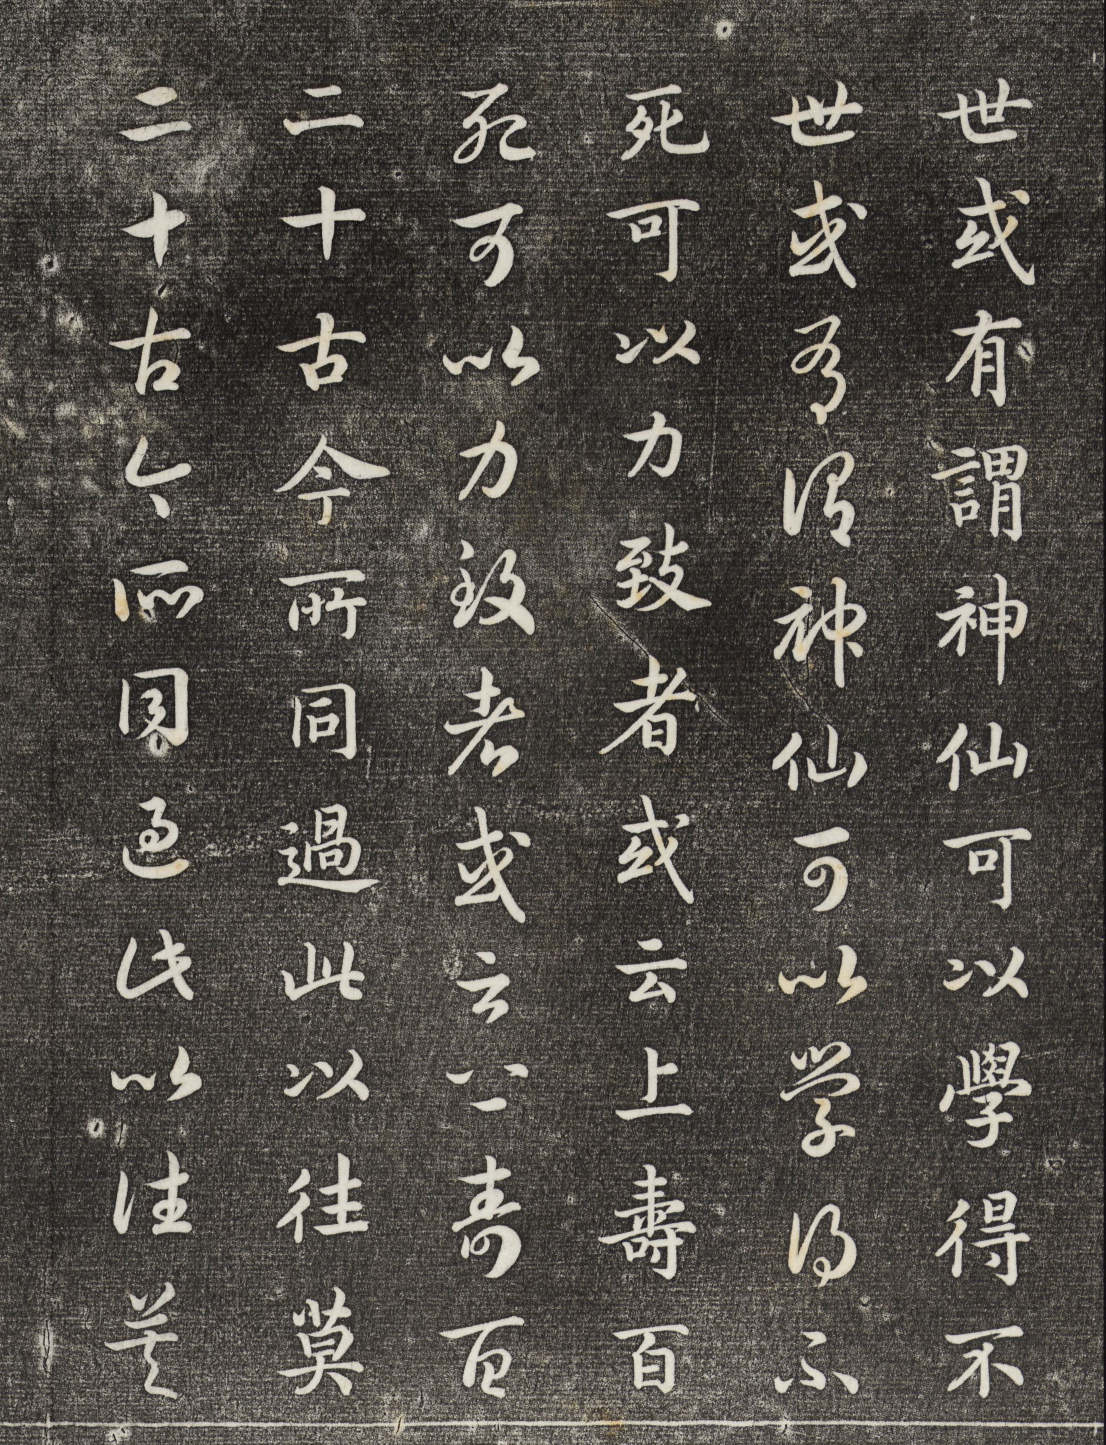 世或有謂神仙可以學得不
世或有謂神仙可以學得不
死可以力致者或云上壽百
死可以力致者或云上壽百
二十古今所同過此以往莫
二十古今所同過此以往莫